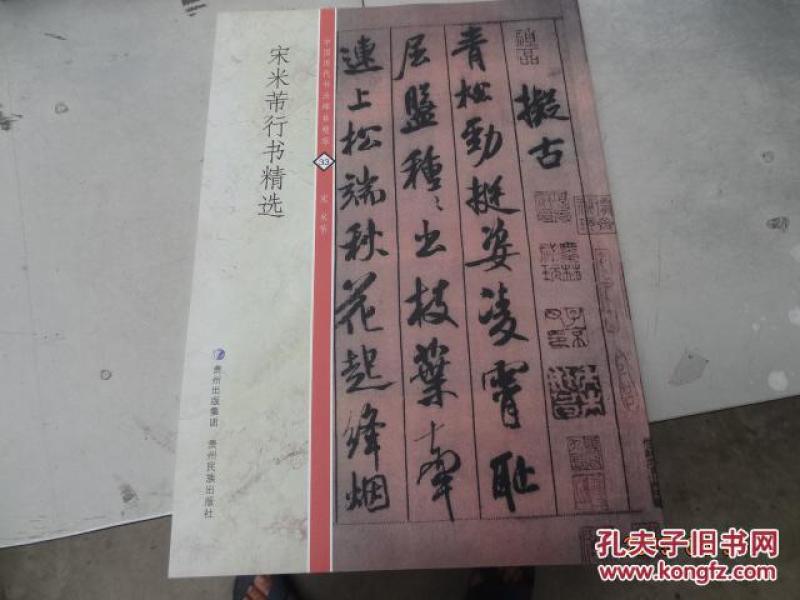 宋米芾行书精选
贵州出版集团 贵州民族出版社
中国历代书法碑帖精萃
33
宋 米芾
擬古
青松勁挺姿凌霄耻
屈盤種〻出枝葉牽
連上松端秋花起絳烟
孔夫子旧书网
www.kongfz.com